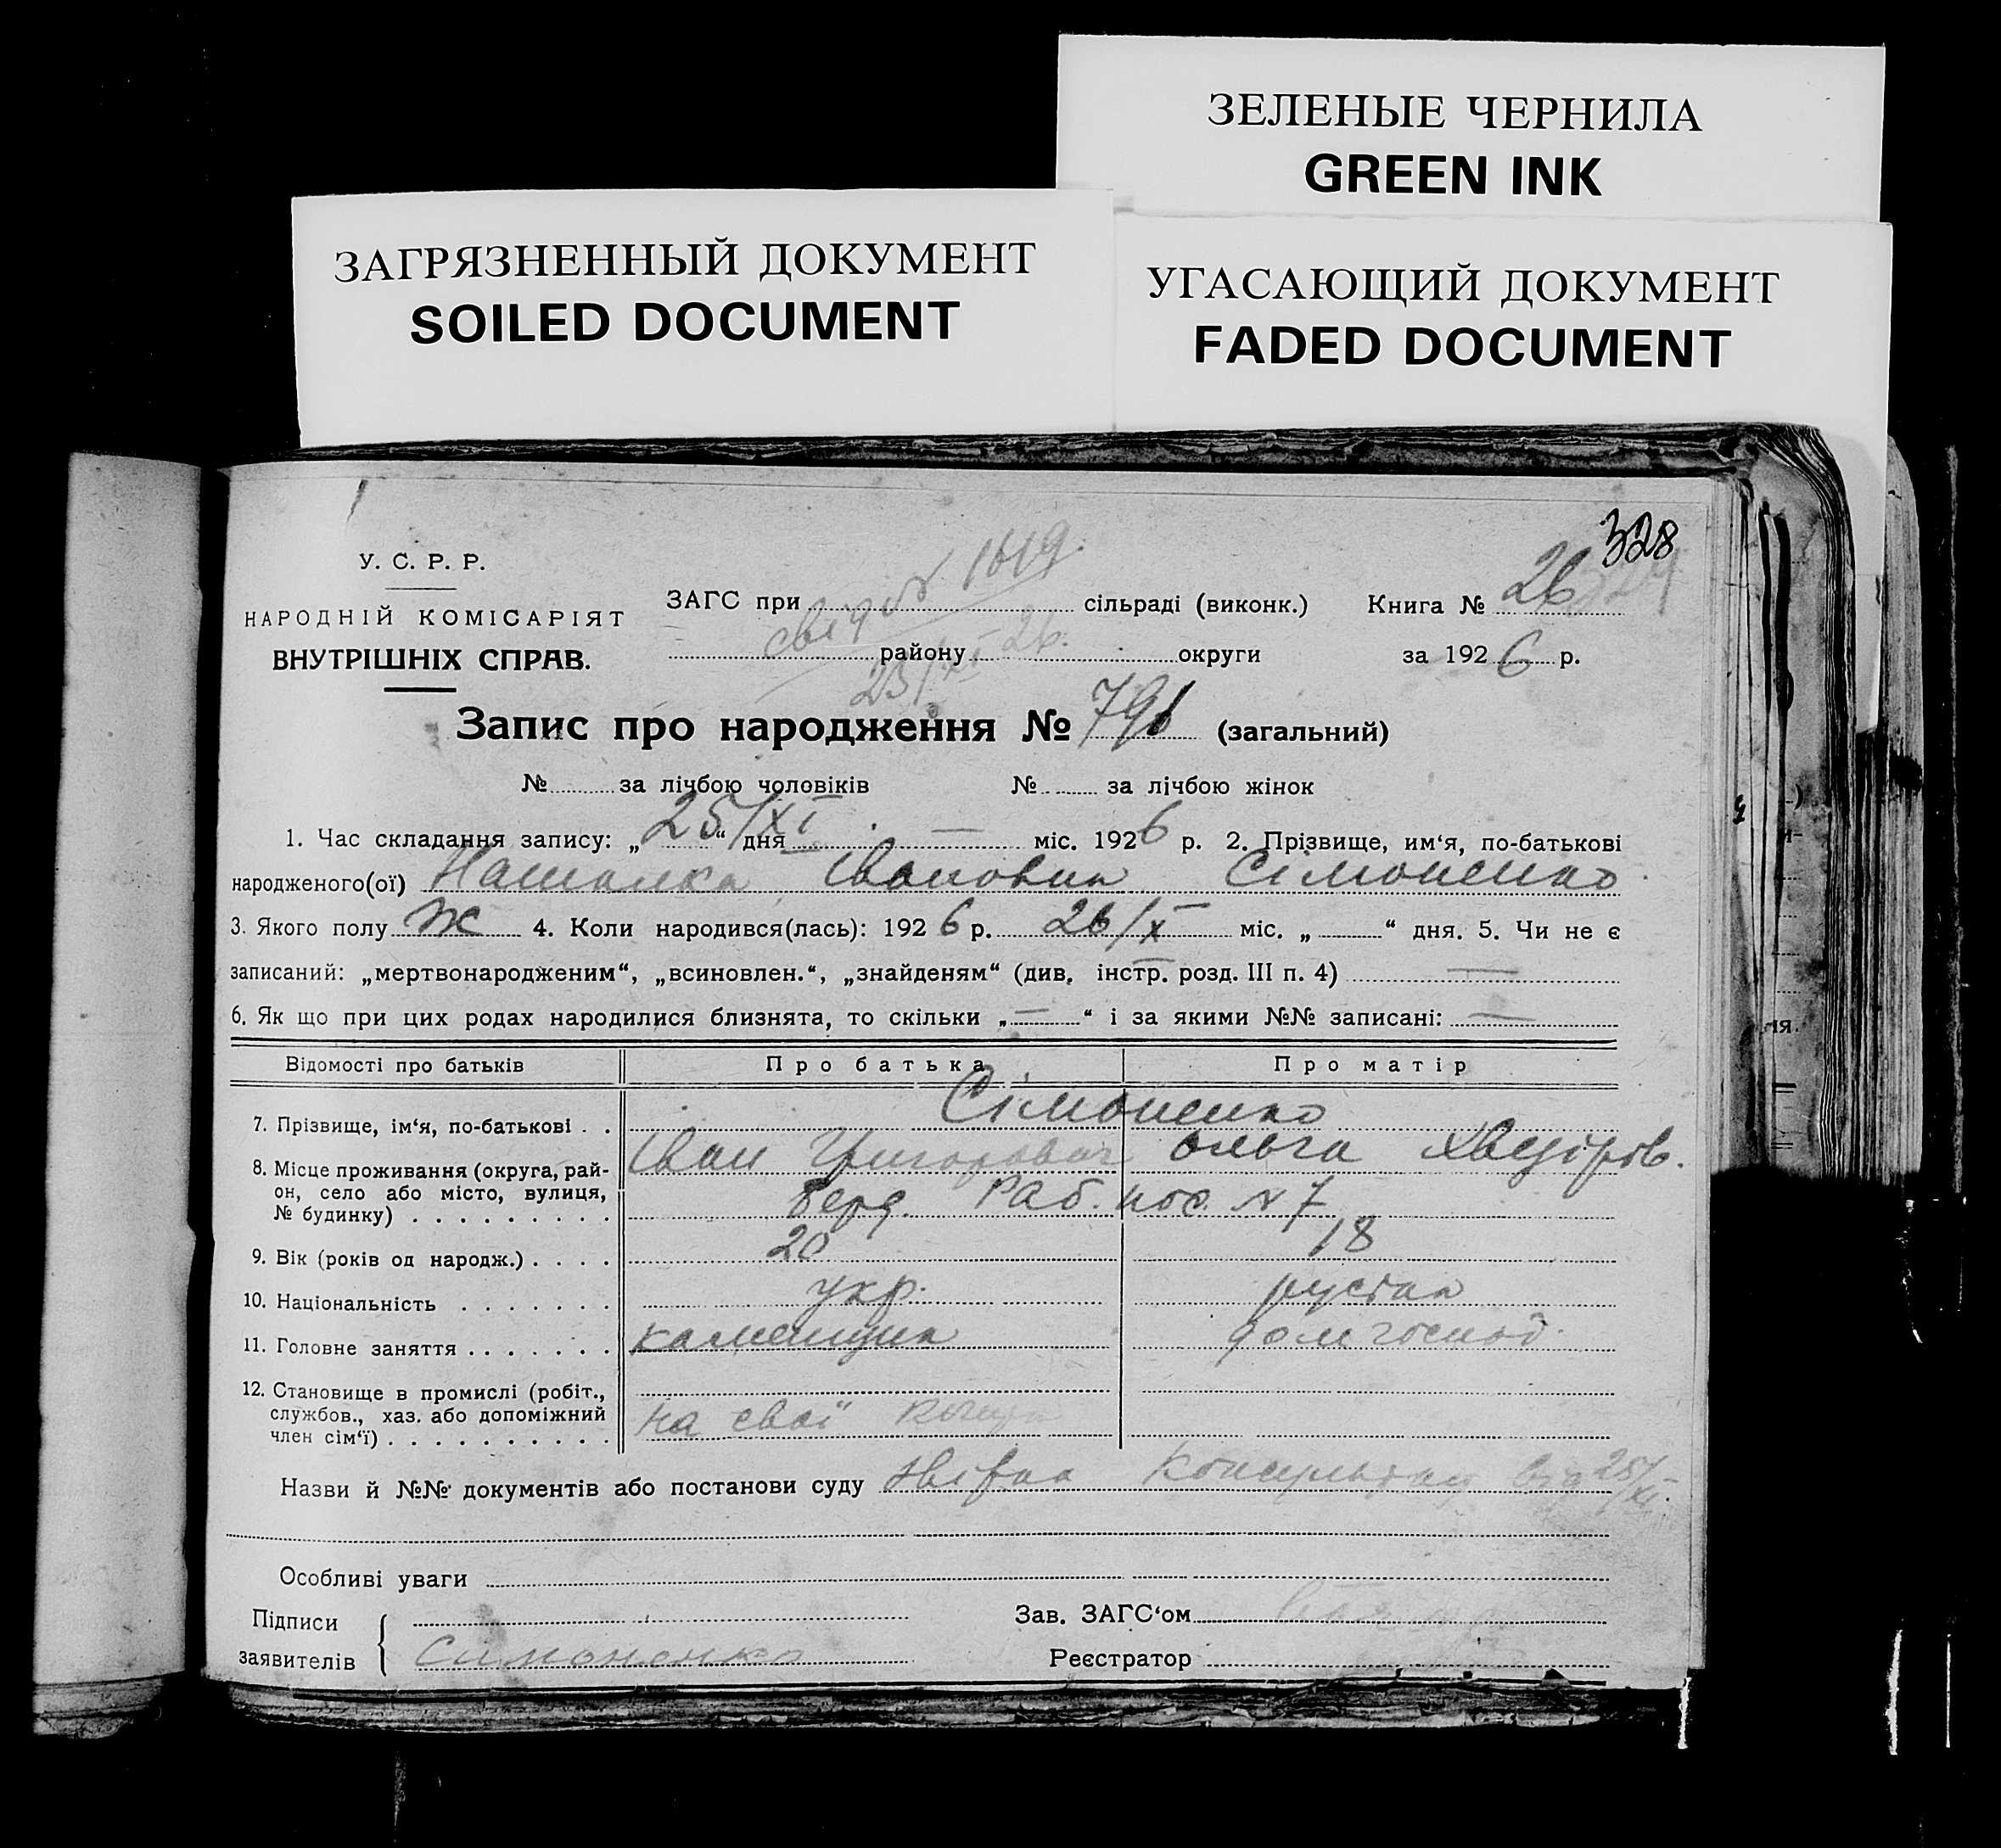 ЗЕЛЕНЫЕ ЧЕРНИЛА
GREEN INK
ЗАГРЯЗНЕННЫЙ ДОКУМЕНТ
SOILED DOCUMENT
УГАСАЮЩИЙ ДОКУМЕНТ
FADED DOCUMENT
328
У. С. Р. Р.
НАРОДНІЙ КОМІСАРІЯТ
ВНУТРІШНІХ СПРАВ.
1619
ЗАГС при сільраді (виконк.) Книга № 26
району округи за 1926 р.
23/XI 26.
Запис про народження № 791 (загальний)
№ за лічбою чоловіків № за лічбою жінок
1. Час складання запису: „25/XI“ дня — міс. 1926 р. 2. Прізвище, им‘я, по-батькові
народженого(ої) Наталка Івановна Сімоненко
3. Якого полу Ж 4. Коли народився(лась): 1926 р. 26/X міс. „—“ дня. 5. Чи не є
записаний: „мертвонародженим“, „всиновлен.“, „знайденям“ (див. інстр. розд. III п. 4) —
6. Як що при цих родах народилися близнята, то скільки „—“ і за якими №№ записані: —
Відомості про батьків Про батька Про матір
7. Прізвище, ім‘я, по-батькові . . Сімоненко
Іван Григорович Ольга Хведіров.
8. Місце проживання (округа, рай-
он, село або місто, вулиця,
№ будинку) . . . . . . . . . Берд. Раб. пос. № 7
9. Вік (років од народж.) . . . . 20 18
10. Національність . . . . . . . укр. руська
11. Головне заняття . . . . . . . каменщик дом господ.
12. Становище в промислі (робіт.,
службов., хаз. або допоміжний
член сім‘ї) . . . . . . . . . . на свої кошти
Назви й №№ документів або постанови суду Консультац від 25/XI.
Особливі уваги
Підписи
заявителів Симоненко
Зав. ЗАГС‘ом
Реєстратор